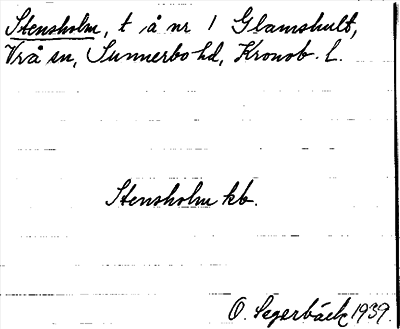 Stensholm, t å nr 1 Glamshult,
Vrå sn, Sunnerbo hd, Kronob. l.
Stensholm kb.
O. Segerbäck 1939.